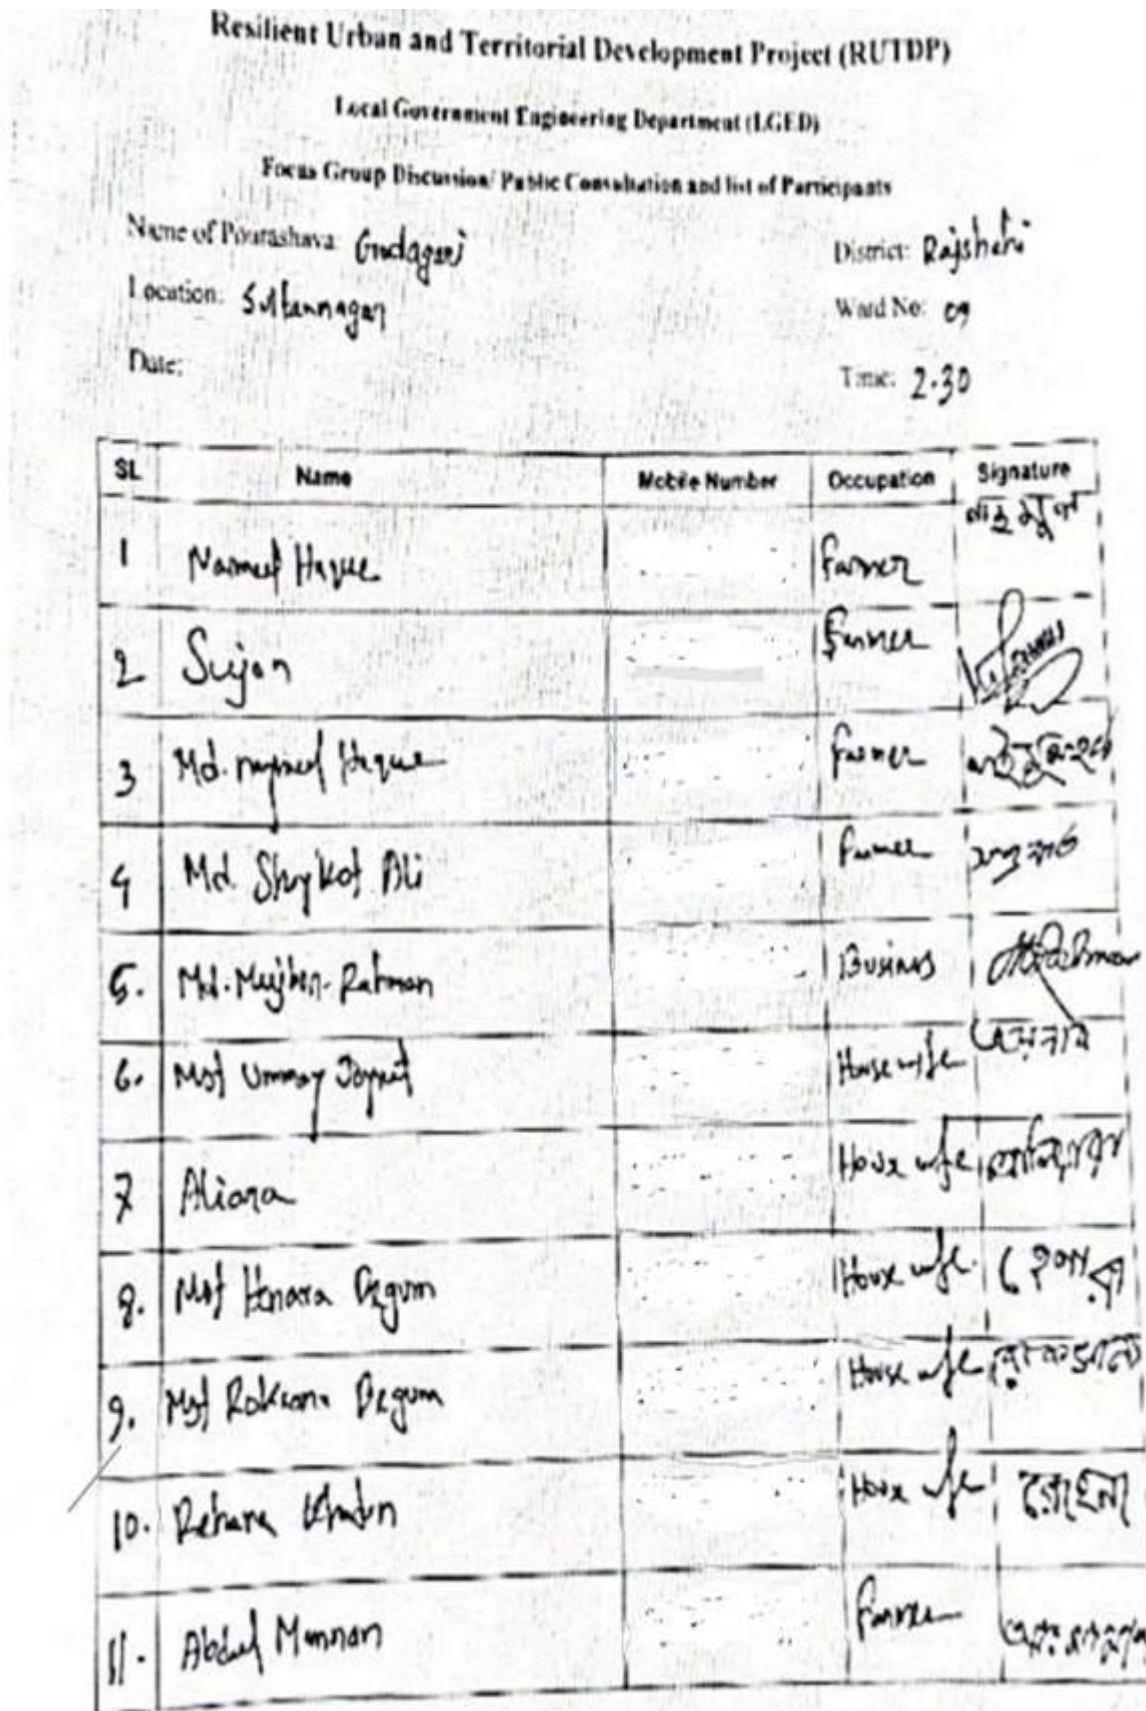 Resilient Urban and Territorial Development Project (RUTDP)
Local Government Engineering Department (LGED)
Focus Group Discussion/ Public Consultation and list of Participants
Name of Pourashava: Godagari District: Rajshahi
Location: Sultannagar Ward No: 09
Date: Time: 2.30
SL Name Mobile Number Occupation Signature
1 Haque Farmer
2 Sujon Farmer
3 Md. Haque Farmer
4 Md. Shoykot Ali Farmer
5. Md. Mujibor Rahman Business
6. Mst Ummay House wife
7 Aliara House wife
8. Mst Henara Begum House wife হেনারা
9. Mst Roksana Begum House wife
10. Rehana Khatun House wife রেহেনা
11. Abdul Mannan Farmer